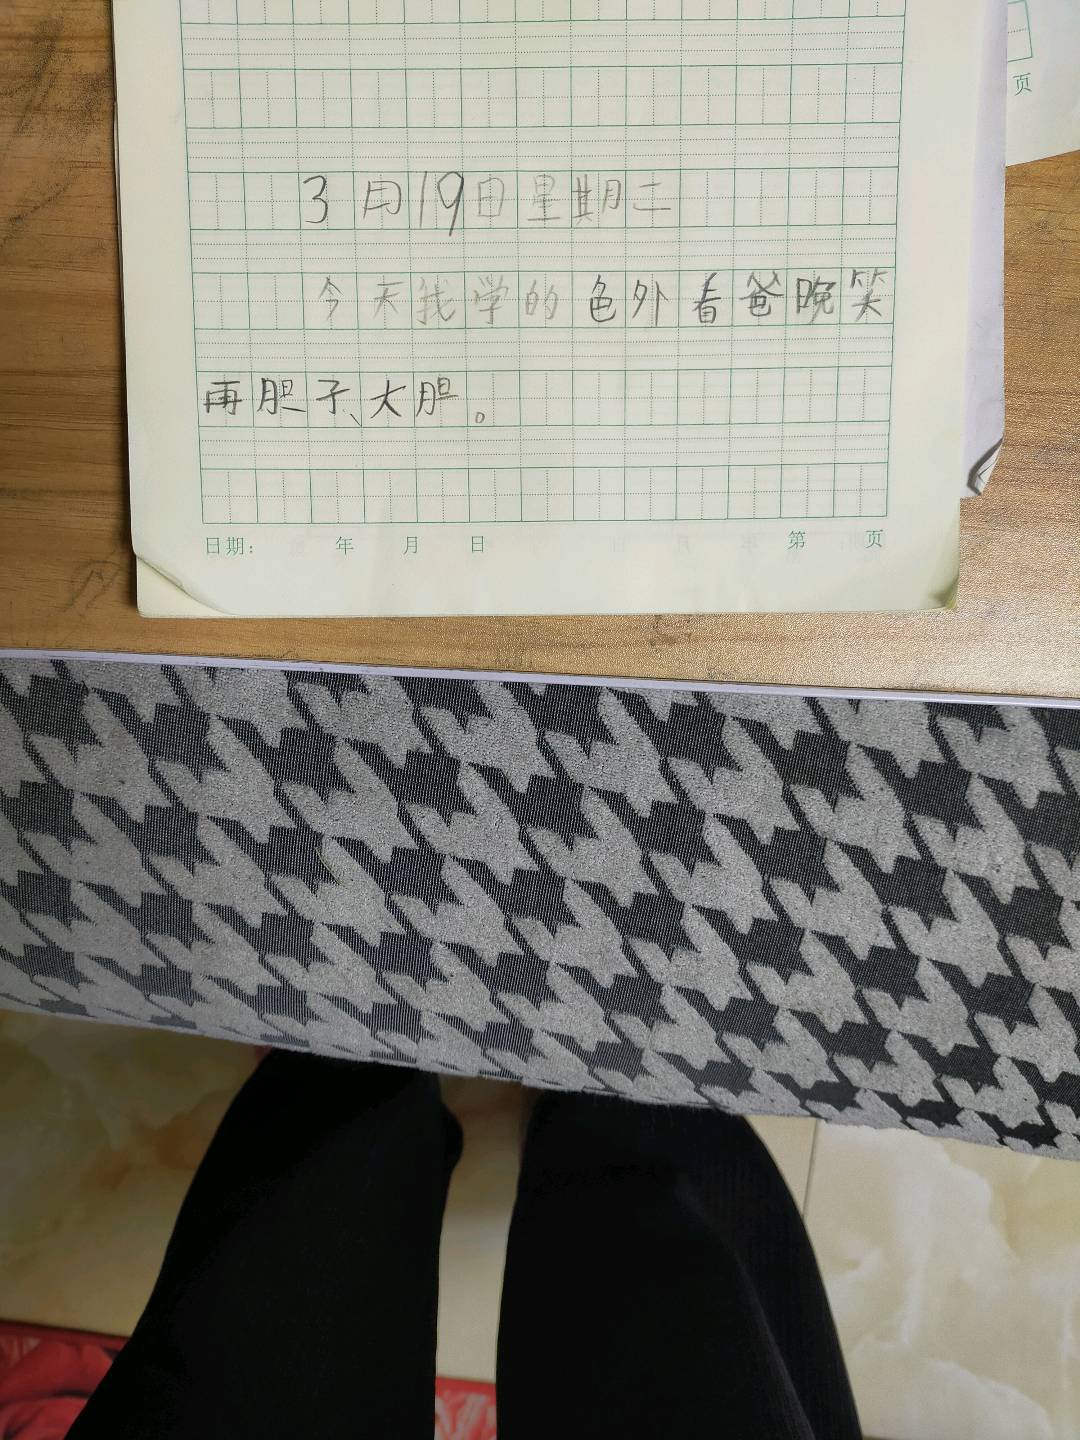 页
3月19日星期二
今天我学的色外看爸晚笑
再胆子、大胆。
日期: 年 月 日 第 页